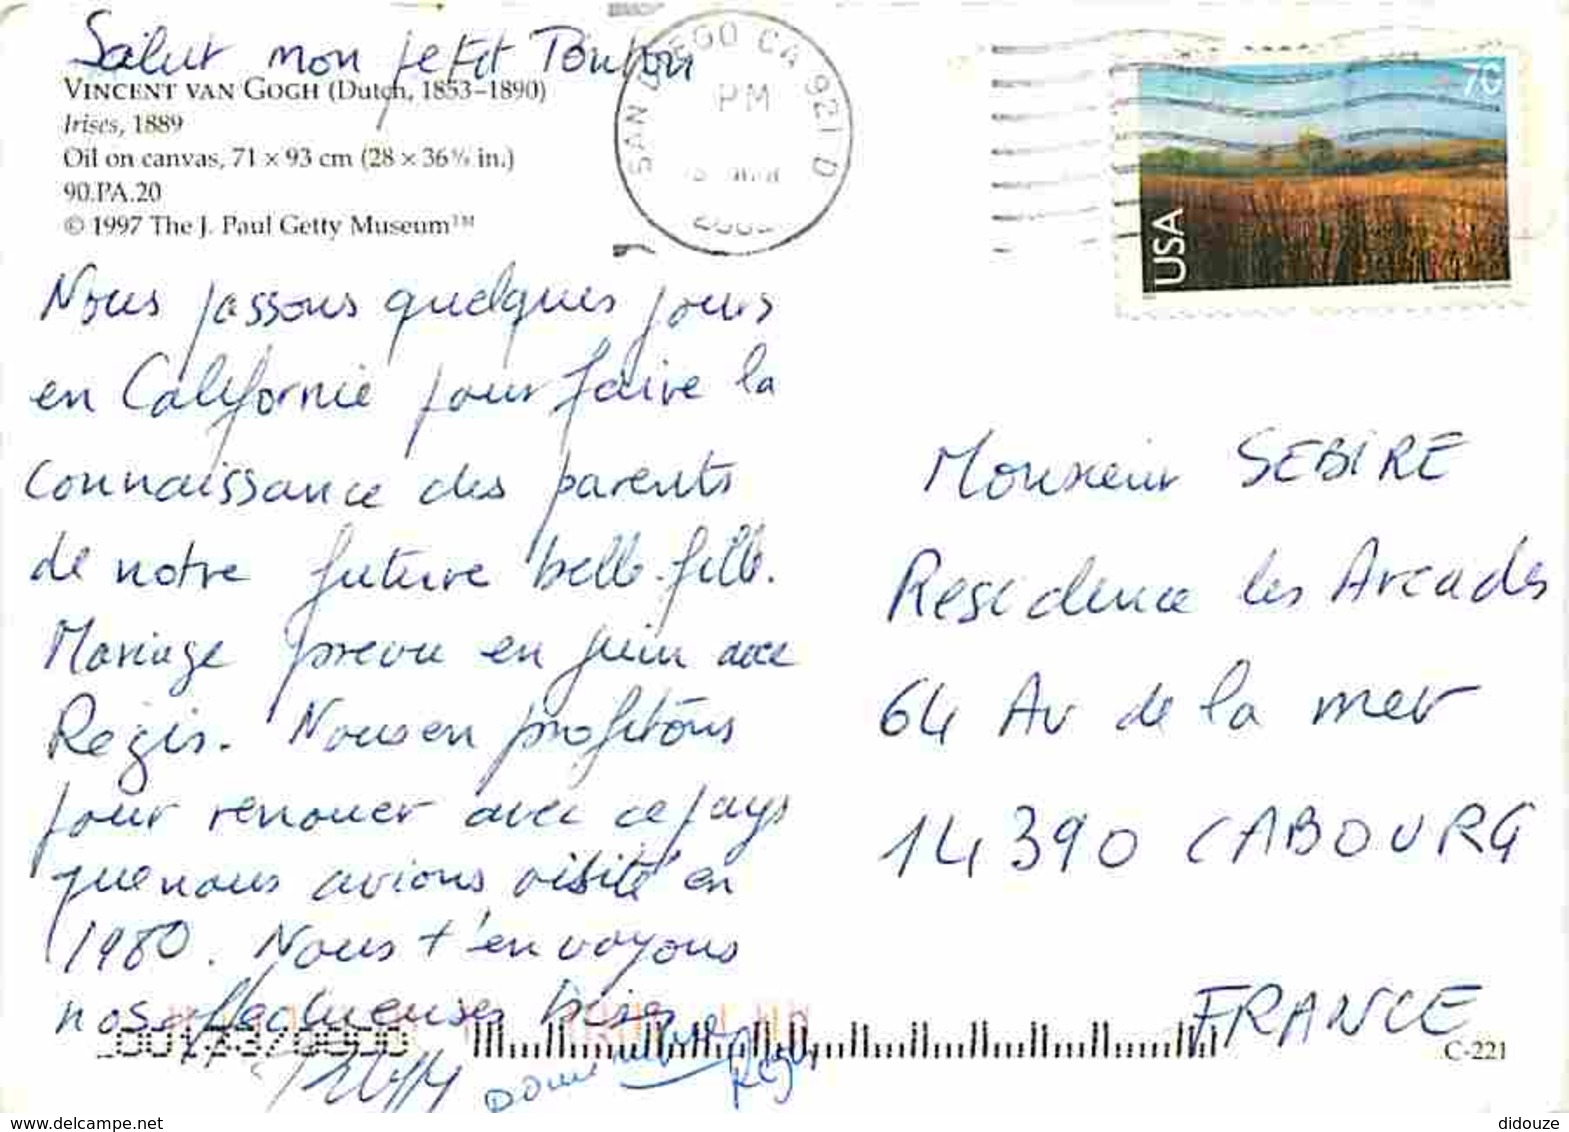 Salut mon petit Toupou
VINCENT VAN GOGH (Dutch, 1853–1890)
Irises, 1889
Oil on canvas, 71 × 93 cm (28 × 36⅝ in.)
90.PA.20
© 1997 The J. Paul Getty Museum™
SAN DIEGO CA 921
PM
70
USA
Nous passons quelques jours
en Californie pour faire la
connaissance des parents
de notre future belle-fille.
Mariage prevu en juin avec
Régis. Nous en profitons
pour renouer avec ce pays
que nous avions visité en
1980. Nous t'envoyons
nos affectueuses bises
Dominique Régis
Monsieur SEBIRE
Residence les Arcades
64 Av de la mer
14390 CABOURG
FRANCE
C-221
www.delcampe.net
didouze